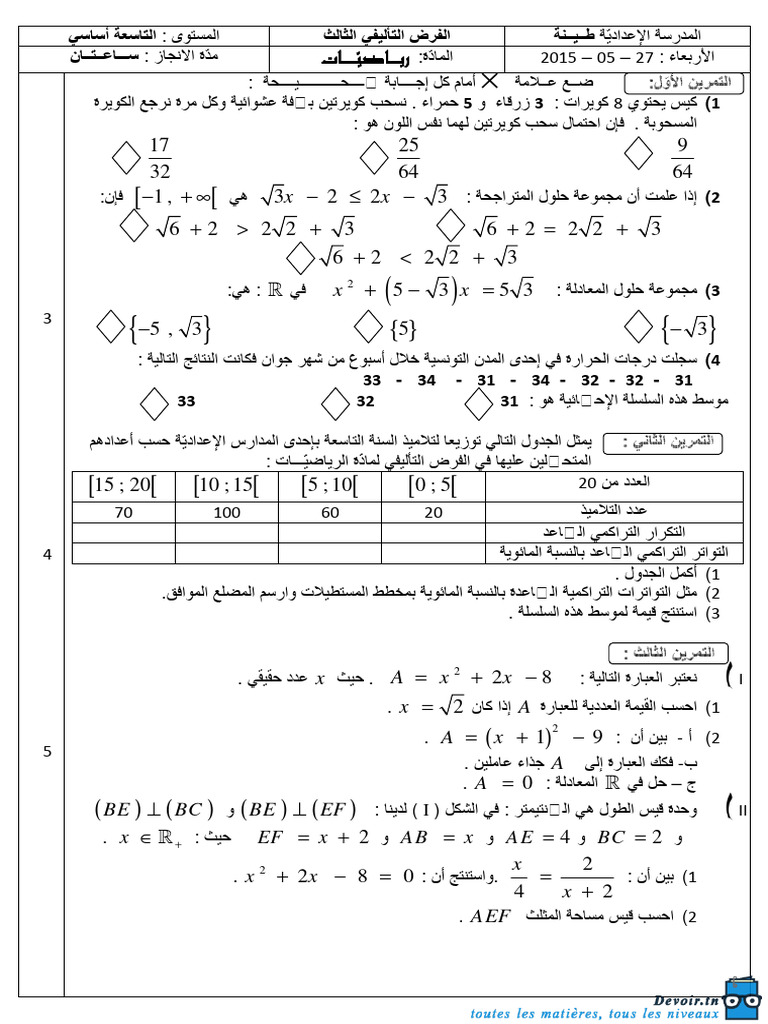 المدرسة الإعداديّة طـيـنة
الفرض التأليفي الثالث
المستوى : التاسعة أساسي
الأربعاء : 27 – 05 – 2015
المادّة: رياضيّات
مدّة الانجاز : ســاعـتــان
التمرين الأوّل: ضـع عـلامة × أمام كل إجــابة ـحـيـحة :
1) كيس يحتوي 8 كويرات : 3 زرقاء و 5 حمراء . نسحب كويرتين بـ□فة عشوائية وكل مرة نرجع الكويرة
المسحوبة . فإن احتمال سحب كويرتين لهما نفس اللون هو :
9/64 ◇ 25/64 ◇ 17/32 ◇
2) إذا علمت أن مجموعة حلول المتراجحة : √3x − 2 ≤ 2x − √3 هي [−1 , +∞[ فإن:
√6 + 2 = 2√2 + √3 ◇ √6 + 2 > 2√2 + √3 ◇
√6 + 2 < 2√2 + √3 ◇
3) مجموعة حلول المعادلة : x² + (5 − √3)x = 5√3 في ℝ : هي:
3
{−√3} ◇ {5} ◇ {−5 , √3} ◇
4) سجلت درجات الحرارة في إحدى المدن التونسية خلال أسبوع من شهر جوان فكانت النتائج التالية :
31 - 32 - 32 - 34 - 31 - 34 - 33
موسط هذه السلسلة الإحـ□ائية هو : 31 ◇ 32 ◇ 33 ◇
التمرين الثاني : يمثل الجدول التالي توزيعا لتلاميذ السنة التاسعة بإحدى المدارس الإعداديّة حسب أعدادهم
المتحـ□لين عليها في الفرض التأليفي لمادّة الرياضيّــات :
العدد من 20 [0 ; 5[ [5 ; 10[ [10 ; 15[ [15 ; 20[
عدد التلاميذ 20 60 100 70
التكرار التراكمي الـ□اعد
التواتر التراكمي الـ□اعد بالنسبة المائوية
4
1) أكمل الجدول .
2) مثل التواترات التراكمية الـ□اعدة بالنسبة المائوية بمخطط المستطيلات وارسم المضلع الموافق.
3) استنتج قيمة لموسط هذه السلسلة .
التمرين الثالث :
I) نعتبر العبارة التالية : A = x² + 2x − 8 . حيث x عدد حقيقي .
1) احسب القيمة العددية للعبارة A إذا كان x = √2 .
2) أ - بين أن : A = (x + 1)² − 9 .
5
ب- فكك العبارة إلى A جذاء عاملين .
ج – حل في ℝ المعادلة : A = 0 .
II) وحدة قيس الطول هي الـ□نتيمتر : في الشكل ( I ) لدينا : (BE) ⊥ (EF) و (BE) ⊥ (BC)
و BC = 2 و AE = 4 و AB = x و EF = x + 2 حيث : x ∈ ℝ₊ .
1) بين أن : x/4 = 2/(x + 2) .واستنتج أن : x² + 2x − 8 = 0 .
2) احسب قيس مساحة المثلث AEF .
Devoir.tn
toutes les matières, tous les niveaux